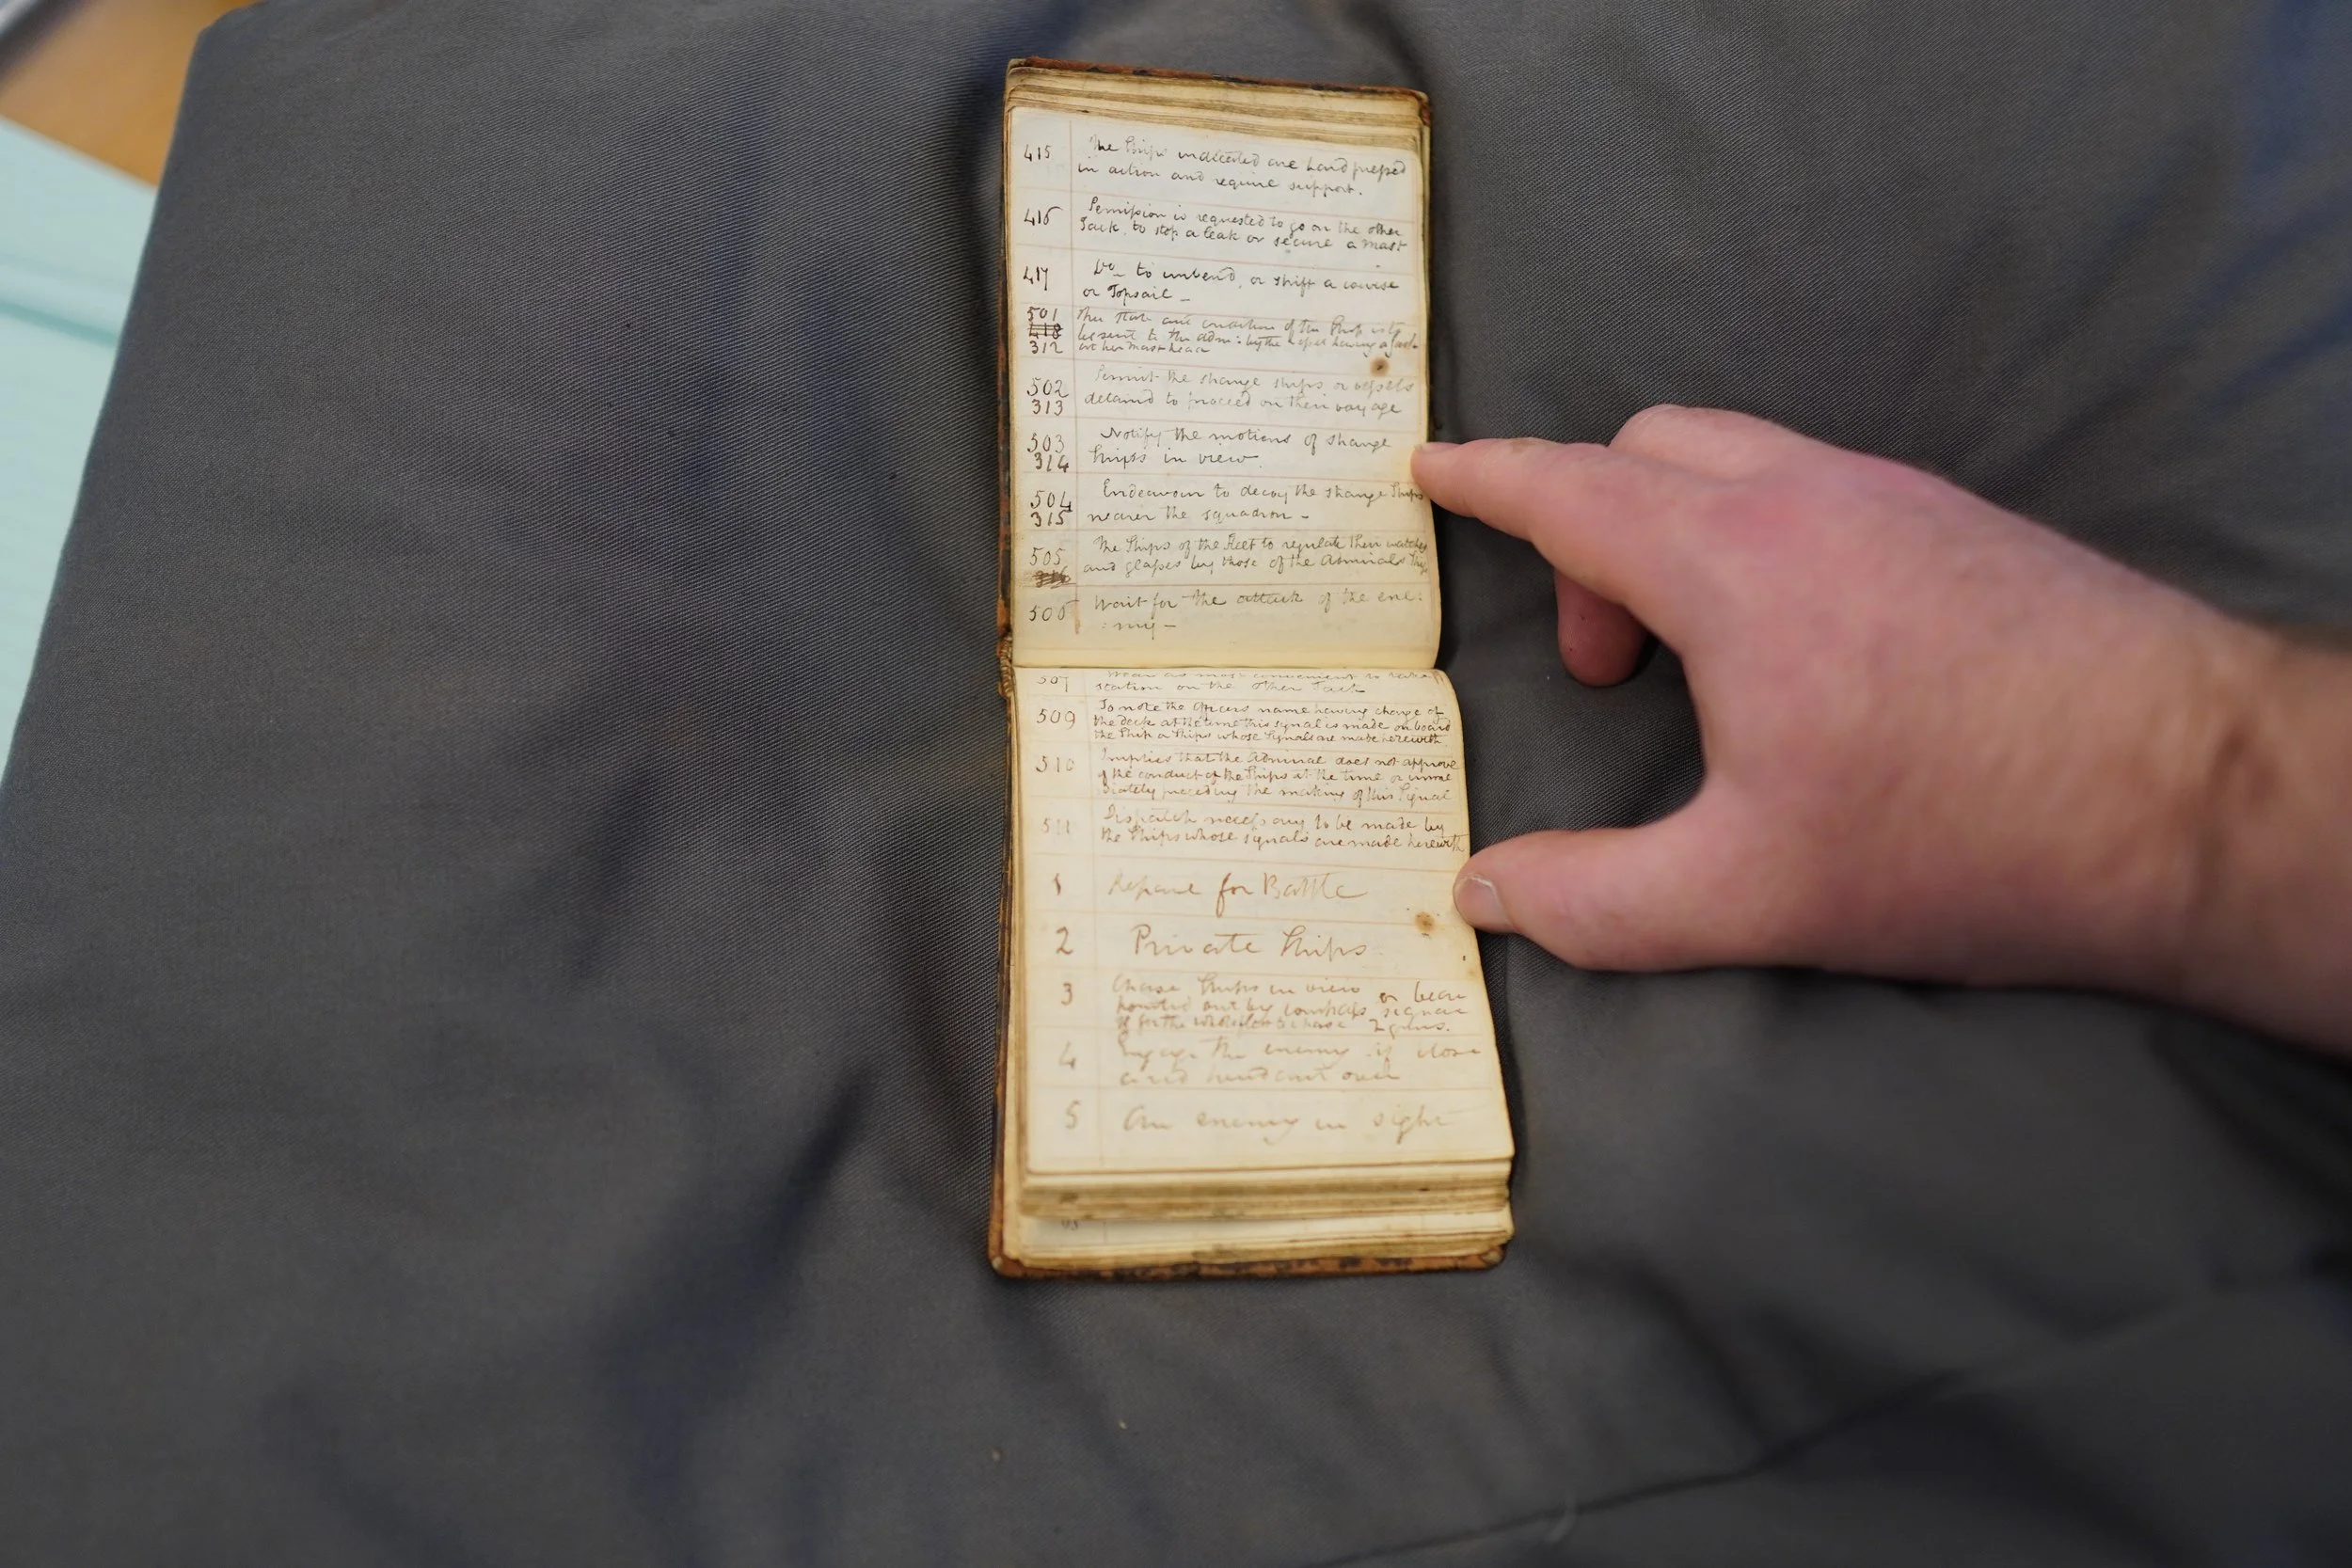 415 The Ships indicated are hard pressed
in action and require support.
416 Permission is requested to go on the other
Tack, to stop a leak or secure a mast
417 Do to unbend, or shift a course
or Topsail –
501
418
312
The State and condition of the Ship is to
be sent to the Adm: by the
at her mast head
502
313
Permit the strange ships or vessels
detained to proceed on their voyage
503
314
Notify the motions of strange
Ships in view
504
315
Endeavour to decoy the strange Ships
nearer the squadron –
505
The Ships of the Fleet to regulate their watches
and glasses by those of the Admirals Ship
506 Wait for the attack of the ene:
:my –
507
station on the other Tack
509 To note the Officers name having charge of
the deck at the time this signal is made on board
the Ship or Ships whose signals are made herewith
510 Implies that the Admiral does not approve
of the conduct of the Ships at the time or imme
diately preceding the making of this Signal
511 Dispatch necessary to be made by
the Ships whose signals are made herewith
1 Prepare for Battle
2 Private Ships
3 Chase Ships in view or
pointed out by compass signal
if for the whole 2 guns.
4 Engage the enemy if close
and
5 An enemy in sight